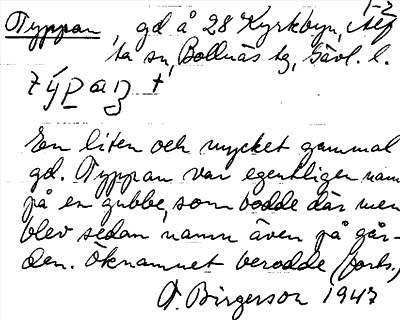 1-2
Typpan, gd å 28 Kyrkbyn, Alf
ta sn, Bollnäs tg, Gävl. l.
En liten och mycket gammal
gd. Typpan var egentligen namn
på en gubbe, som bodde där men
blev sedan namn även på går-
den. Öknamnet berodde (forts.)
A. Birgerson 1947